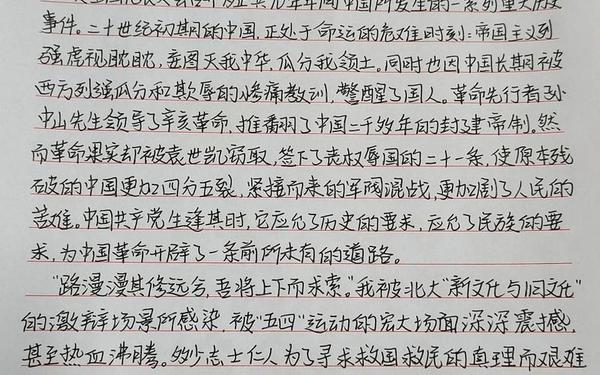 年间中国所发生的一系列重大历
事件。二十世纪初期的中国,正处于命运的危难时刻:帝国主义列
强虎视眈眈,妄图灭我中华,瓜分我领土。同时也因中国长期被
西方列强瓜分和欺辱的惨痛教训,警醒了国人。革命先行者孙
中山先生领导了辛亥革命,推翻了中国二千多年的封建帝制。然
而革命果实却被袁世凯窃取,签下了丧权辱国的二十一条,使原本残
破的中国更加四分五裂,紧接而来的军阀混战,更加剧了人民的
苦难。中国共产党生逢其时,它应允了历史的要求,应允了民族的要
求,为中国革命开辟了一条前所未有的道路。
"路漫漫其修远兮,吾将上下而求索。"我被北大"新文化与旧文化"
的激辩场景所感染,被"五四"运动的宏大场面深深震撼,
甚至热血沸腾。多少志士仁人为了寻求救国救民的真理而艰难